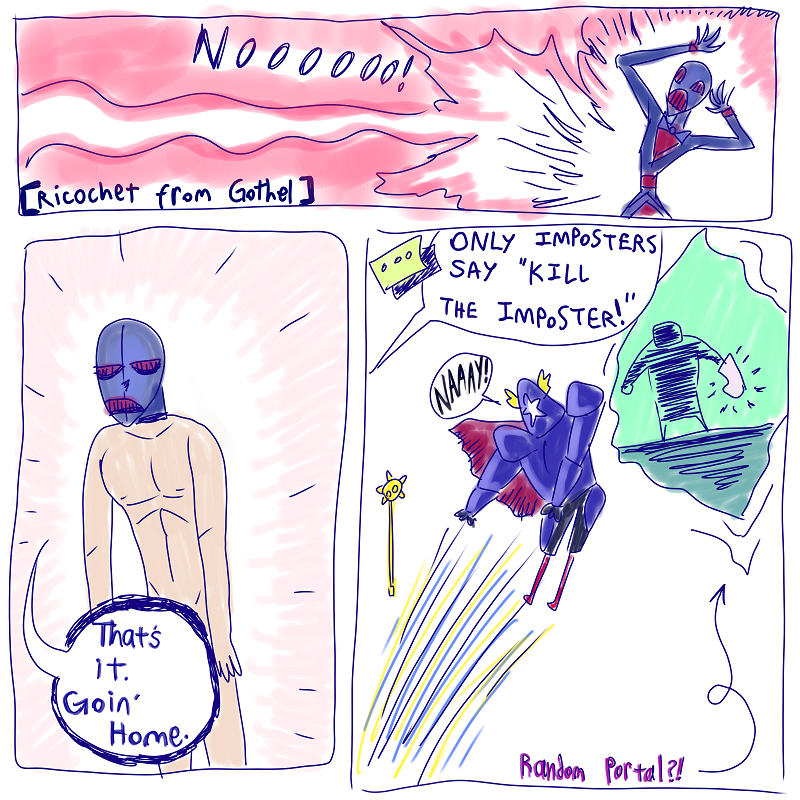 Noooooo!
[Ricochet from Gothel]
That's
it.
Goin'
Home.
ONLY IMPOSTERS
SAY "KILL
THE IMPOSTER!"
NAAAY!
Random Portal?!